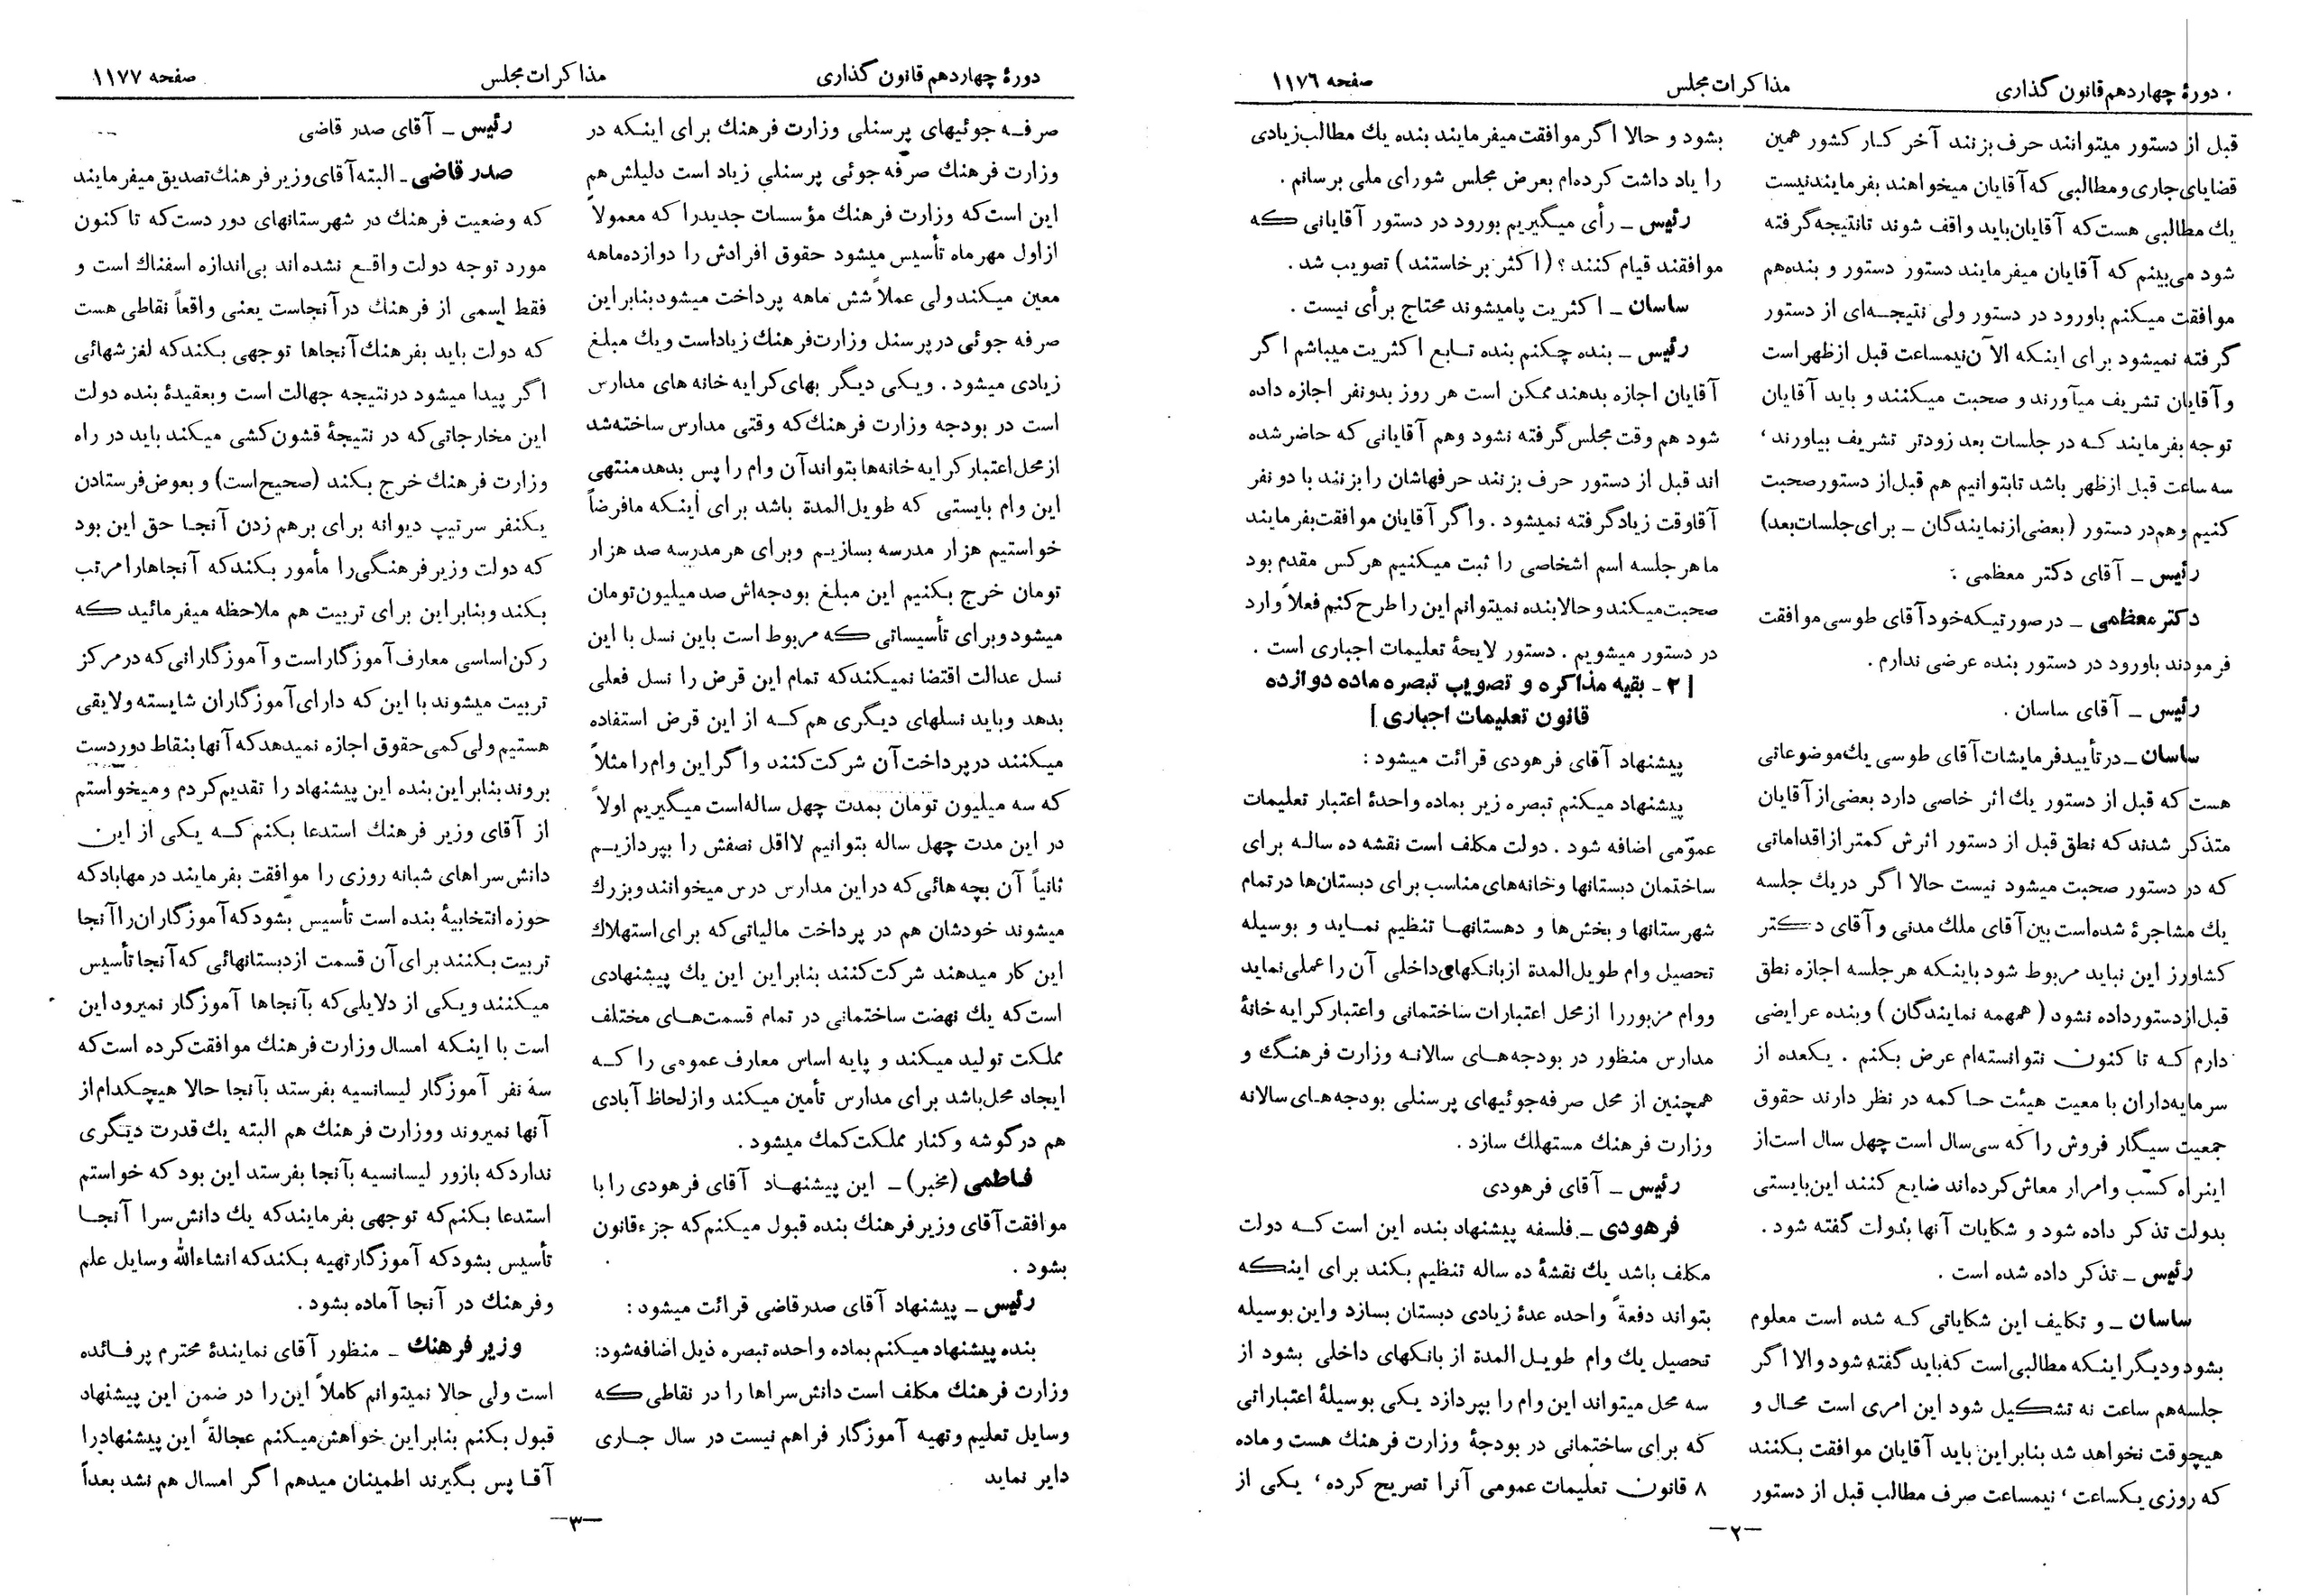 دورهٔ چهاردهم قانون گذاری
مذاکرات مجلس
صفحه ۱۱۷۶
قبل از دستور میتوانند حرف بزنند آخر کار کشور همین
قضایای جاری و مطالبی که آقایان میخواهند بفرمایند نیست
یك مطالبی هست که آقایان باید واقف شوند تا نتیجه گرفته
شود می‌بینم که آقایان میفرمایند دستور دستور و بنده هم
موافقت میکنم باورود در دستور ولی نتیجه‌ای از دستور
گرفته نمیشود برای اینکه الآن نیمساعت قبل از ظهر است
و آقایان تشریف میآورند و صحبت میکنند و باید آقایان
توجه بفرمایند که در جلسات بعد زودتر تشریف بیاورند،
سه ساعت قبل از ظهر باشد تا بتوانیم هم قبل از دستور صحبت
کنیم وهم در دستور (بعضی از نمایندگان ـ برای جلسات بعد)
رئیس ـ آقای دکتر معظمی :
دکتر معظمی ـ در صورتیکه خود آقای طوسی موافقت
فرمودند باورود در دستور بنده عرضی ندارم .
رئیس ـ آقای ساسان .
ساسان ـ در تأیید فرمایشات آقای طوسی یك موضوعاتی
هست که قبل از دستور یك اثر خاصی دارد بعضی از آقایان
متذکر شدند که نطق قبل از دستور اثرش کمتر از اقداماتی
که در دستور صحبت میشود نیست حالا اگر در یك جلسه
یك مشاجرهٔ شده است بین آقای ملك مدنی و آقای دکتر
کشاورز این نباید مربوط شود باینکه هر جلسه اجازه نطق
قبل از دستور داده نشود ( همهمه نمایندگان ) وبنده عرایضی
دارم که تا کنون نتوانسته‌ام عرض بکنم . یکعده از
سرمایه‌داران با معیت هیئت حاکمه در نظر دارند حقوق
جمعیت سیگار فروش را که سی سال است چهل سال است از
اینراه کسب و امرار معاش کرده‌اند ضایع کنند این بایستی
بدولت تذکر داده شود و شکایات آنها بدولت گفته شود .
رئیس ـ تذکر داده شده است .
ساسان ـ و تکلیف این شکایاتی که شده است معلوم
بشود و دیگر اینکه مطالبی است که باید گفته شود والا اگر
جلسه هم ساعت نه تشکیل شود این امری است محال و
هیچوقت نخواهد شد بنابراین باید آقایان موافقت بکنند
که روزی یکساعت ، نیمساعت صرف مطالب قبل از دستور
بشود و حالا اگر موافقت میفرمایند بنده یك مطالب زیادی
را یاد داشت کرده‌ام بعرض مجلس شورای ملی برسانم .
رئیس ـ رأی میگیریم بورود در دستور آقایانی که
موافقند قیام کنند ؟ (اکثر برخاستند ) تصویب شد .
ساسان ـ اکثریت پا میشوند محتاج برأی نیست .
رئیس ـ بنده چکنم بنده تابع اکثریت میباشم اگر
آقایان اجازه بدهند ممکن است هر روز بدونفر اجازه داده
شود هم وقت مجلس گرفته نشود وهم آقایانی که حاضر شده
اند قبل از دستور حرف بزنند حرفهاشان را بزنند با دو نفر
آقا وقت زیاد گرفته نمیشود . و اگر آقایان موافقت بفرمایند
ما هر جلسه اسم اشخاصی را ثبت میکنیم هر کس مقدم بود
صحبت میکند و حالا بنده نمیتوانم این را طرح کنم فعلاً وارد
در دستور میشویم . دستور لایحهٔ تعلیمات اجباری است .
[ ۲ ـ بقیه مذاکره و تصویب تبصره ماده دوازده
قانون تعلیمات اجباری ]
پیشنهاد آقای فرهودی قرائت میشود :
پیشنهاد میکنم تبصره زیر بماده واحدهٔ اعتبار تعلیمات
عمومی اضافه شود . دولت مکلف است نقشه ده ساله برای
ساختمان دبستانها و خانه‌های مناسب برای دبستان‌ها در تمام
شهرستانها و بخش‌ها و دهستانها تنظیم نماید و بوسیله
تحصیل وام طویل‌المدة از بانکهای داخلی آن را عملی نماید
و وام مزبور را از محل اعتبارات ساختمانی و اعتبار کرایه خانهٔ
مدارس منظور در بودجه‌های سالانه وزارت فرهنگ و
همچنین از محل صرفه‌جوئیهای پرسنلی بودجه‌های سالانه
وزارت فرهنك مستهلك سازد .
رئیس ـ آقای فرهودی
فرهودی ـ فلسفه پیشنهاد بنده این است که دولت
مکلف باشد یك نقشهٔ ده ساله تنظیم بکند برای اینکه
بتواند دفعةً واحده عدهٔ زیادی دبستان بسازد واین بوسیله
تحصیل یك وام طویل المدة از بانکهای داخلی بشود از
سه محل میتواند این وام را بپردازد یکی بوسیلهٔ اعتباراتی
که برای ساختمانی در بودجهٔ وزارت فرهنك هست و ماده
۸ قانون تعلیمات عمومی آنرا تصریح کرده ، یکی از
ـ۲ـ
دورهٔ چهاردهم قانون گذاری
مذاکرات مجلس
صفحه ۱۱۷۷
صرفه جوئیهای پرسنلی وزارت فرهنك برای اینکه در
وزارت فرهنك صرفه جوئی پرسنلی زیاد است دلیلش هم
این است که وزارت فرهنك مؤسسات جدید را که معمولاً
از اول مهرماه تأسیس میشود حقوق افرادش را دوازده‌ماهه
معین میکند ولی عملاً شش ماهه پرداخت میشود بنابر این
صرفه جوئی در پرسنل وزارت فرهنك زیاد است و یك مبلغ
زیادی میشود . ویکی دیگر بهای کرایه خانه های مدارس
است در بودجه وزارت فرهنك که وقتی مدارس ساخته شد
از محل اعتبار کرایه خانه‌ها بتواند آن وام را پس بدهد منتهی
این وام بایستی که طویل المدة باشد برای اینکه ما فرضاً
خواستیم هزار مدرسه بسازیم وبرای هر مدرسه صد هزار
تومان خرج بکنیم این مبلغ بودجه‌اش صد میلیون تومان
میشود و برای تأسیساتی که مربوط است باین نسل با این
نسل عدالت اقتضا نمیکند که تمام این قرض را نسل فعلی
بدهد و باید نسلهای دیگری هم که از این قرض استفاده
میکنند در پرداخت آن شرکت کنند و اگر این وام را مثلاً
که سه میلیون تومان بمدت چهل ساله است میگیریم اولاً
در این مدت چهل ساله بتوانیم لااقل نصفش را بپردازیم
ثانیاً آن بچه هائی که در این مدارس درس میخوانند و بزرك
میشوند خودشان هم در پرداخت مالیاتی که برای استهلاك
این کار میدهند شرکت کنند بنابر این این یك پیشنهادی
است که یك نهضت ساختمانی در تمام قسمت‌های مختلف
مملکت تولید میکند و پایه اساس معارف عمومی را که
ایجاد محل باشد برای مدارس تأمین میکند و از لحاظ آبادی
هم در گوشه و کنار مملکت کمك میشود .
فاطمی (مخبر) ـ این پیشنهاد آقای فرهودی را با
موافقت آقای وزیر فرهنك بنده قبول میکنم که جزء قانون
بشود .
رئیس ـ پیشنهاد آقای صدرقاضی قرائت میشود :
بنده پیشنهاد میکنم بماده واحده تبصره ذیل اضافه شود:
وزارت فرهنك مکلف است دانش سراها را در نقاطی که
وسایل تعلیم و تهیه آموزگار فراهم نیست در سال جاری
دایر نماید
رئیس ـ آقای صدر قاضی
صدر قاضی ـ البته آقای وزیر فرهنك تصدیق میفرمایند
که وضعیت فرهنك در شهرستانهای دور دست که تا کنون
مورد توجه دولت واقع نشده اند بی‌اندازه اسفناك است و
فقط اسمی از فرهنك در آنجاست یعنی واقعاً نقاطی هست
که دولت باید بفرهنك آنجاها توجهی بکند که لغزشهائی
اگر پیدا میشود در نتیجه جهالت است و بعقیدهٔ بنده دولت
این مخارجاتی که در نتیجهٔ قشون کشی میکند باید در راه
وزارت فرهنك خرج بکند (صحیح است) و بعوض فرستادن
یکنفر سرتیپ دیوانه برای برهم زدن آنجا حق این بود
که دولت وزیر فرهنگی را مأمور بکند که آنجاها را مرتب
بکند و بنابر این برای تربیت هم ملاحظه میفرمائید که
رکن اساسی معارف آموزگار است و آموزگارانی که در مرکز
تربیت میشوند با این که دارای آموزگاران شایسته و لایقی
هستیم ولی کمی حقوق اجازه نمیدهد که آنها بنقاط دوردست
بروند بنابر این بنده این پیشنهاد را تقدیم کردم و میخواستم
از آقای وزیر فرهنك استدعا بکنم که یکی از این
دانش سراهای شبانه روزی را موافقت بفرمایند در مهاباد که
حوزه انتخابیهٔ بنده است تأسیس بشود که آموزگاران را آنجا
تربیت بکنند برای آن قسمت از دبستانهائی که آنجا تأسیس
میکنند و یکی از دلایلی که بآنجاها آموزگار نمیرود این
است با اینکه امسال وزارت فرهنك موافقت کرده است که
سه نفر آموزگار لیسانسیه بفرستد بآنجا حالا هیچکدام از
آنها نمیروند و وزارت فرهنك هم البته یك قدرت دیگری
ندارد که بازور لیسانسیه بآنجا بفرستد این بود که خواستم
استدعا بکنم که توجهی بفرمایند که یك دانش سرا آنجا
تأسیس بشود که آموزگار تهیه بکند که انشاءالله وسایل علم
وفرهنك در آنجا آماده بشود .
وزیر فرهنك ـ منظور آقای نمایندهٔ محترم پر فائده
است ولی حالا نمیتوانم کاملاً این را در ضمن این پیشنهاد
قبول بکنم بنابر این خواهش میکنم عجالةً این پیشنهاد را
آقا پس بگیرند اطمینان میدهم اگر امسال هم نشد بعداً
ـ۳ـ